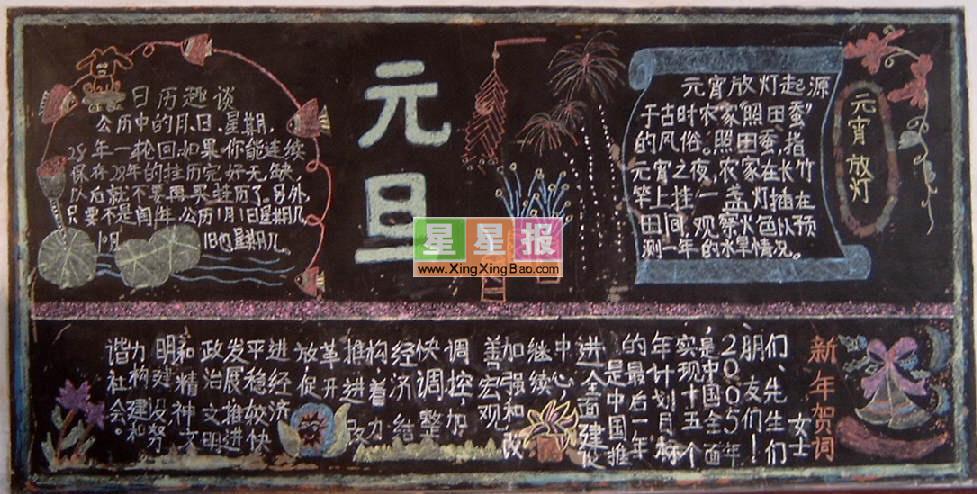 日历趣谈
公历中的月、日、星期,
28年一轮回,如果你能连续
保存28年的挂历完好无缺,
以后就不要再买挂历了。另外,
只要不是闰年,公历1月1日是星期几
1日也星期几
元旦
元宵放灯起源
于古时农家“照田蚕”
的风俗。照田蚕,指
元宵之夜,农家在长竹
竿上挂一盏灯插在
田间,观察火色以预
测一年的水旱情况。
元宵放灯
星星报
www.XingXingBao.com
新年贺词
女士
们、先生们
朋友们!
2005年
是中国全面
实现十五个
年计划目标
的最后一年
是中国推
进全面建设
中心,
继续
加强和改
善宏观
调控加
快调整
经济结
构,着力
推进改
革开
放促
进经济
平稳较快
发展推进
政治文明
和精神文
明建设努
力构建和
谐社会。